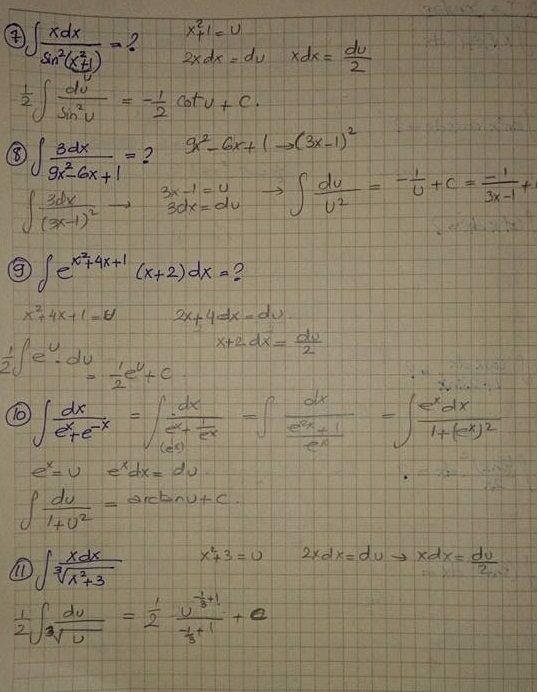 ⑦ ∫ xdx / sin²(x²+1) = ?   x²+1 = u
2xdx = du   xdx = du/2
1/2 ∫ du / sin²u = -1/2 cotu + c.
⑧ ∫ 3dx / 9x²-6x+1 = ?   9x²-6x+1 → (3x-1)²
∫ 3dx / (3x-1)² →   3x-1 = u   → ∫ du / u² = -1/u + c = -1 / 3x-1 +
3dx = du
⑨ ∫ e^(x²+4x+1) (x+2) dx = ?
x²+4x+1 = u   2x+4dx = du
x+2dx = du/2
1/2 ∫ e^u . du = 1/2 e^u + c
⑩ ∫ dx / e^x + e^-x = ∫ dx / e^x + 1/e^x (e^x) = ∫ dx / (e^2x + 1 / e^x) = ∫ e^x dx / 1+(e^x)²
e^x = u   e^x dx = du.
∫ du / 1+u² = arctanu + c.
⑪ ∫ xdx / ³√x²+3   x²+3 = u   2xdx = du → xdx = du/2
1/2 ∫ du / ³√u = 1/2 u^(-1/3+1) / -1/3+1 + c